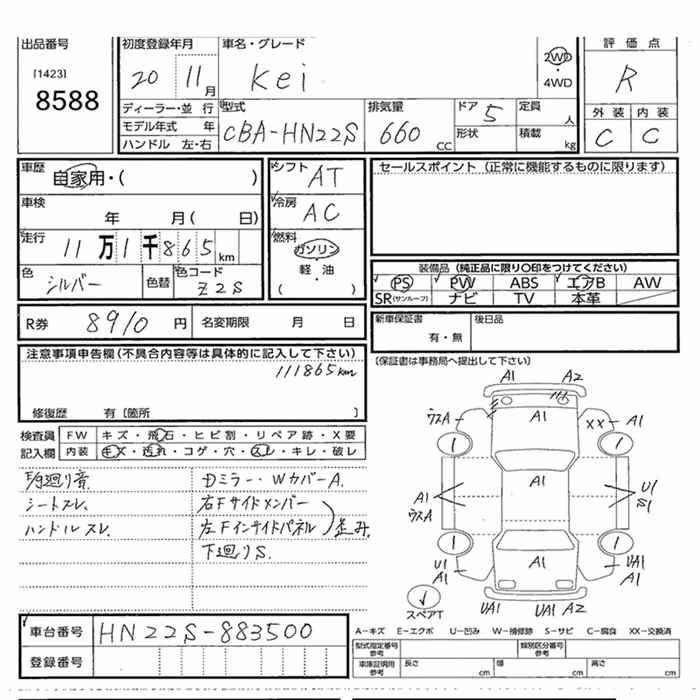 出品番号
[1423]
8588
初度登録年月
20 11月
車名・グレード
Kei
2WD
・
4WD
評価点
R
外装 内装
C C
ディーラー・並行
モデル年式 年
ハンドル 左・右
型式
CBA-HN22S
排気量
660 CC
ドア 5
形状
定員 人
積載 kg
車歴
自家用・( )
車検
年 月( 日)
走行
11万1千865km
色
シルバー
色替
色コード
Z2S
シフト
AT
冷房
AC
燃料
ガソリン
・
軽・油
( )
セールスポイント (正常に機能するものに限ります)
装備品 (純正品に限り〇印をつけてください)
PS PW ABS エアB AW
SR(サンルーフ) ナビ TV 本革
R券 8910 円 名変期限 月 日
新車保証書
有・無
後日品
注意事項申告欄(不具合内容等は具体的に記入して下さい)
111865km
修復歴 有[箇所 ]
(保証書は事務局へ提出して下さい)
検査員 FW キズ・飛石・ヒビ割・リペア跡・X要
記入欄 内装 キズ・汚れ・コゲ・穴・スレ・キレ・破レ
シートスレ.
ハンドルスレ.
Dミラー・WカバーA.
右Fサイドメンバー
左Fインサイドパネル
歪み
下廻りS.
A1 A2
A1
XX A1
1 1
A1
A1
U1
S1
1 1
A1
U1
A1
UA1
A1
1
スペアT
UA1 UA1 A2
車台番号 HN22S-883500
登録番号
A-キズ E-エクボ U-凹み W-補修跡 S-サビ C-腐食 XX-交換済
型式指定番号
参考
類別区分番号
参考
車庫証明用
参考
長さ cm 幅 cm 高さ cm